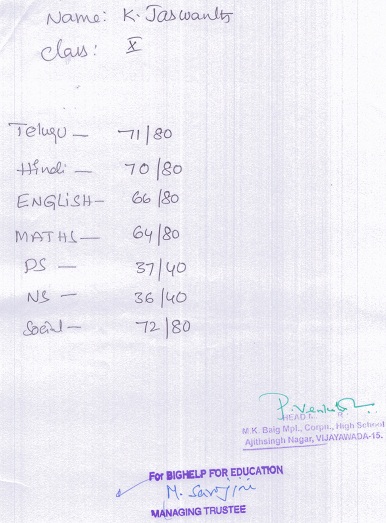 Name: K. Jaswanth
Class: X
Telugu — 71/80
Hindi — 70/80
ENGLISH — 66/80
MATHS — 64/80
PS — 37/40
NS — 36/40
Social — 72/80
P. Venkat
HEAD
M.K. Baig Mpl., Corpn., High School
Ajithsingh Nagar, VIJAYAWADA-15.
For BIGHELP FOR EDUCATION
M. Sarojini
MANAGING TRUSTEE